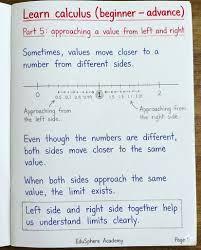 Learn calculus (beginner – advance)
Part 5: approaching a value from left and right
Sometimes, values move closer to a
number from different sides.
0 1 2
Approaching from
the left side.
Approaching from
the right side.
Even though the numbers are different,
both sides move closer to the same
value.
When both sides approach the same
value, the limit exists.
Left side and right side together help
us understand limits clearly.
EduSphere Academy
Page 1